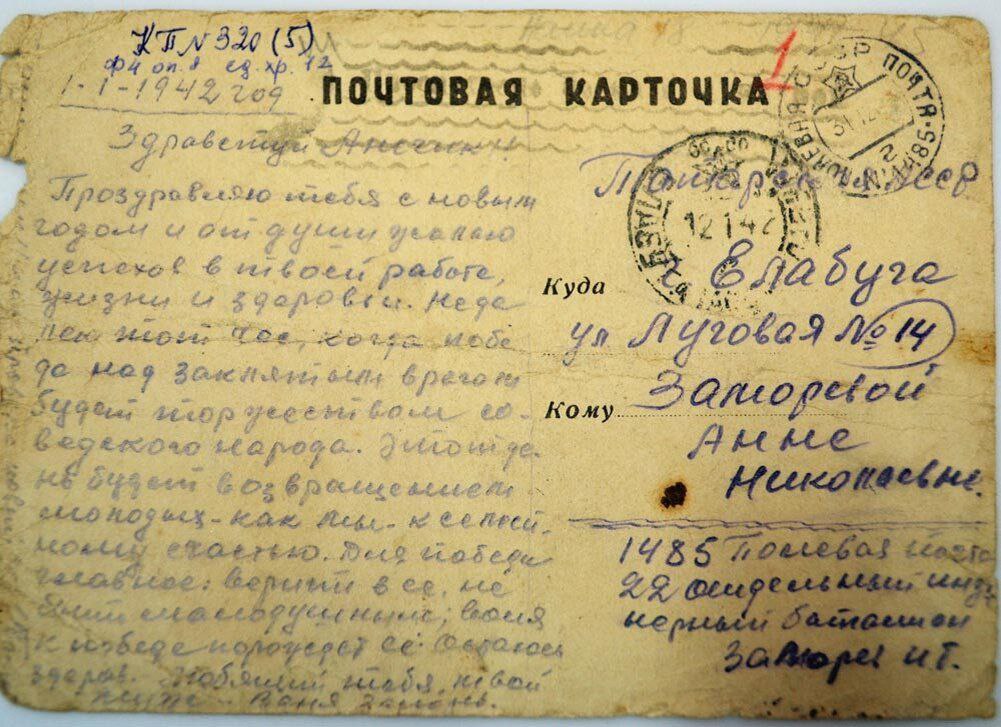 КП № 320 (5)
ФЧ оп. 1 ед. хр. 12
1-I-1942 год
ПОЧТОВАЯ КАРТОЧКА
1
Здравствуй
СССР ПОЧТА-585
ПОЛЕВАЯ
№2
31 12
12 1 42
ЕЛАБУГА
Проздравляю тебя с новым
годом и от души желаю
успехов в твоей работе,
жизни и здоровьи. Неда
лек тот час, когда побе
да над заклятым врагом
будет торжеством со-
ведского народа. Это
будет возвращением
молодых - как мы - к семей
ному счастью. Для победы
главное: верить в ее, не
быть малодушным; воля
к победе порождает ее. Остаюсь
здоров. Любящий тебя, твой
муж - Ваня
Татарская АССР
Куда г. Елабуга
ул Луговая № 14
Кому Заморевой
Анне
Николаевне.
1485 Полевая почта
22 отдельный инже
нерный батальон
Заморев И.Г.